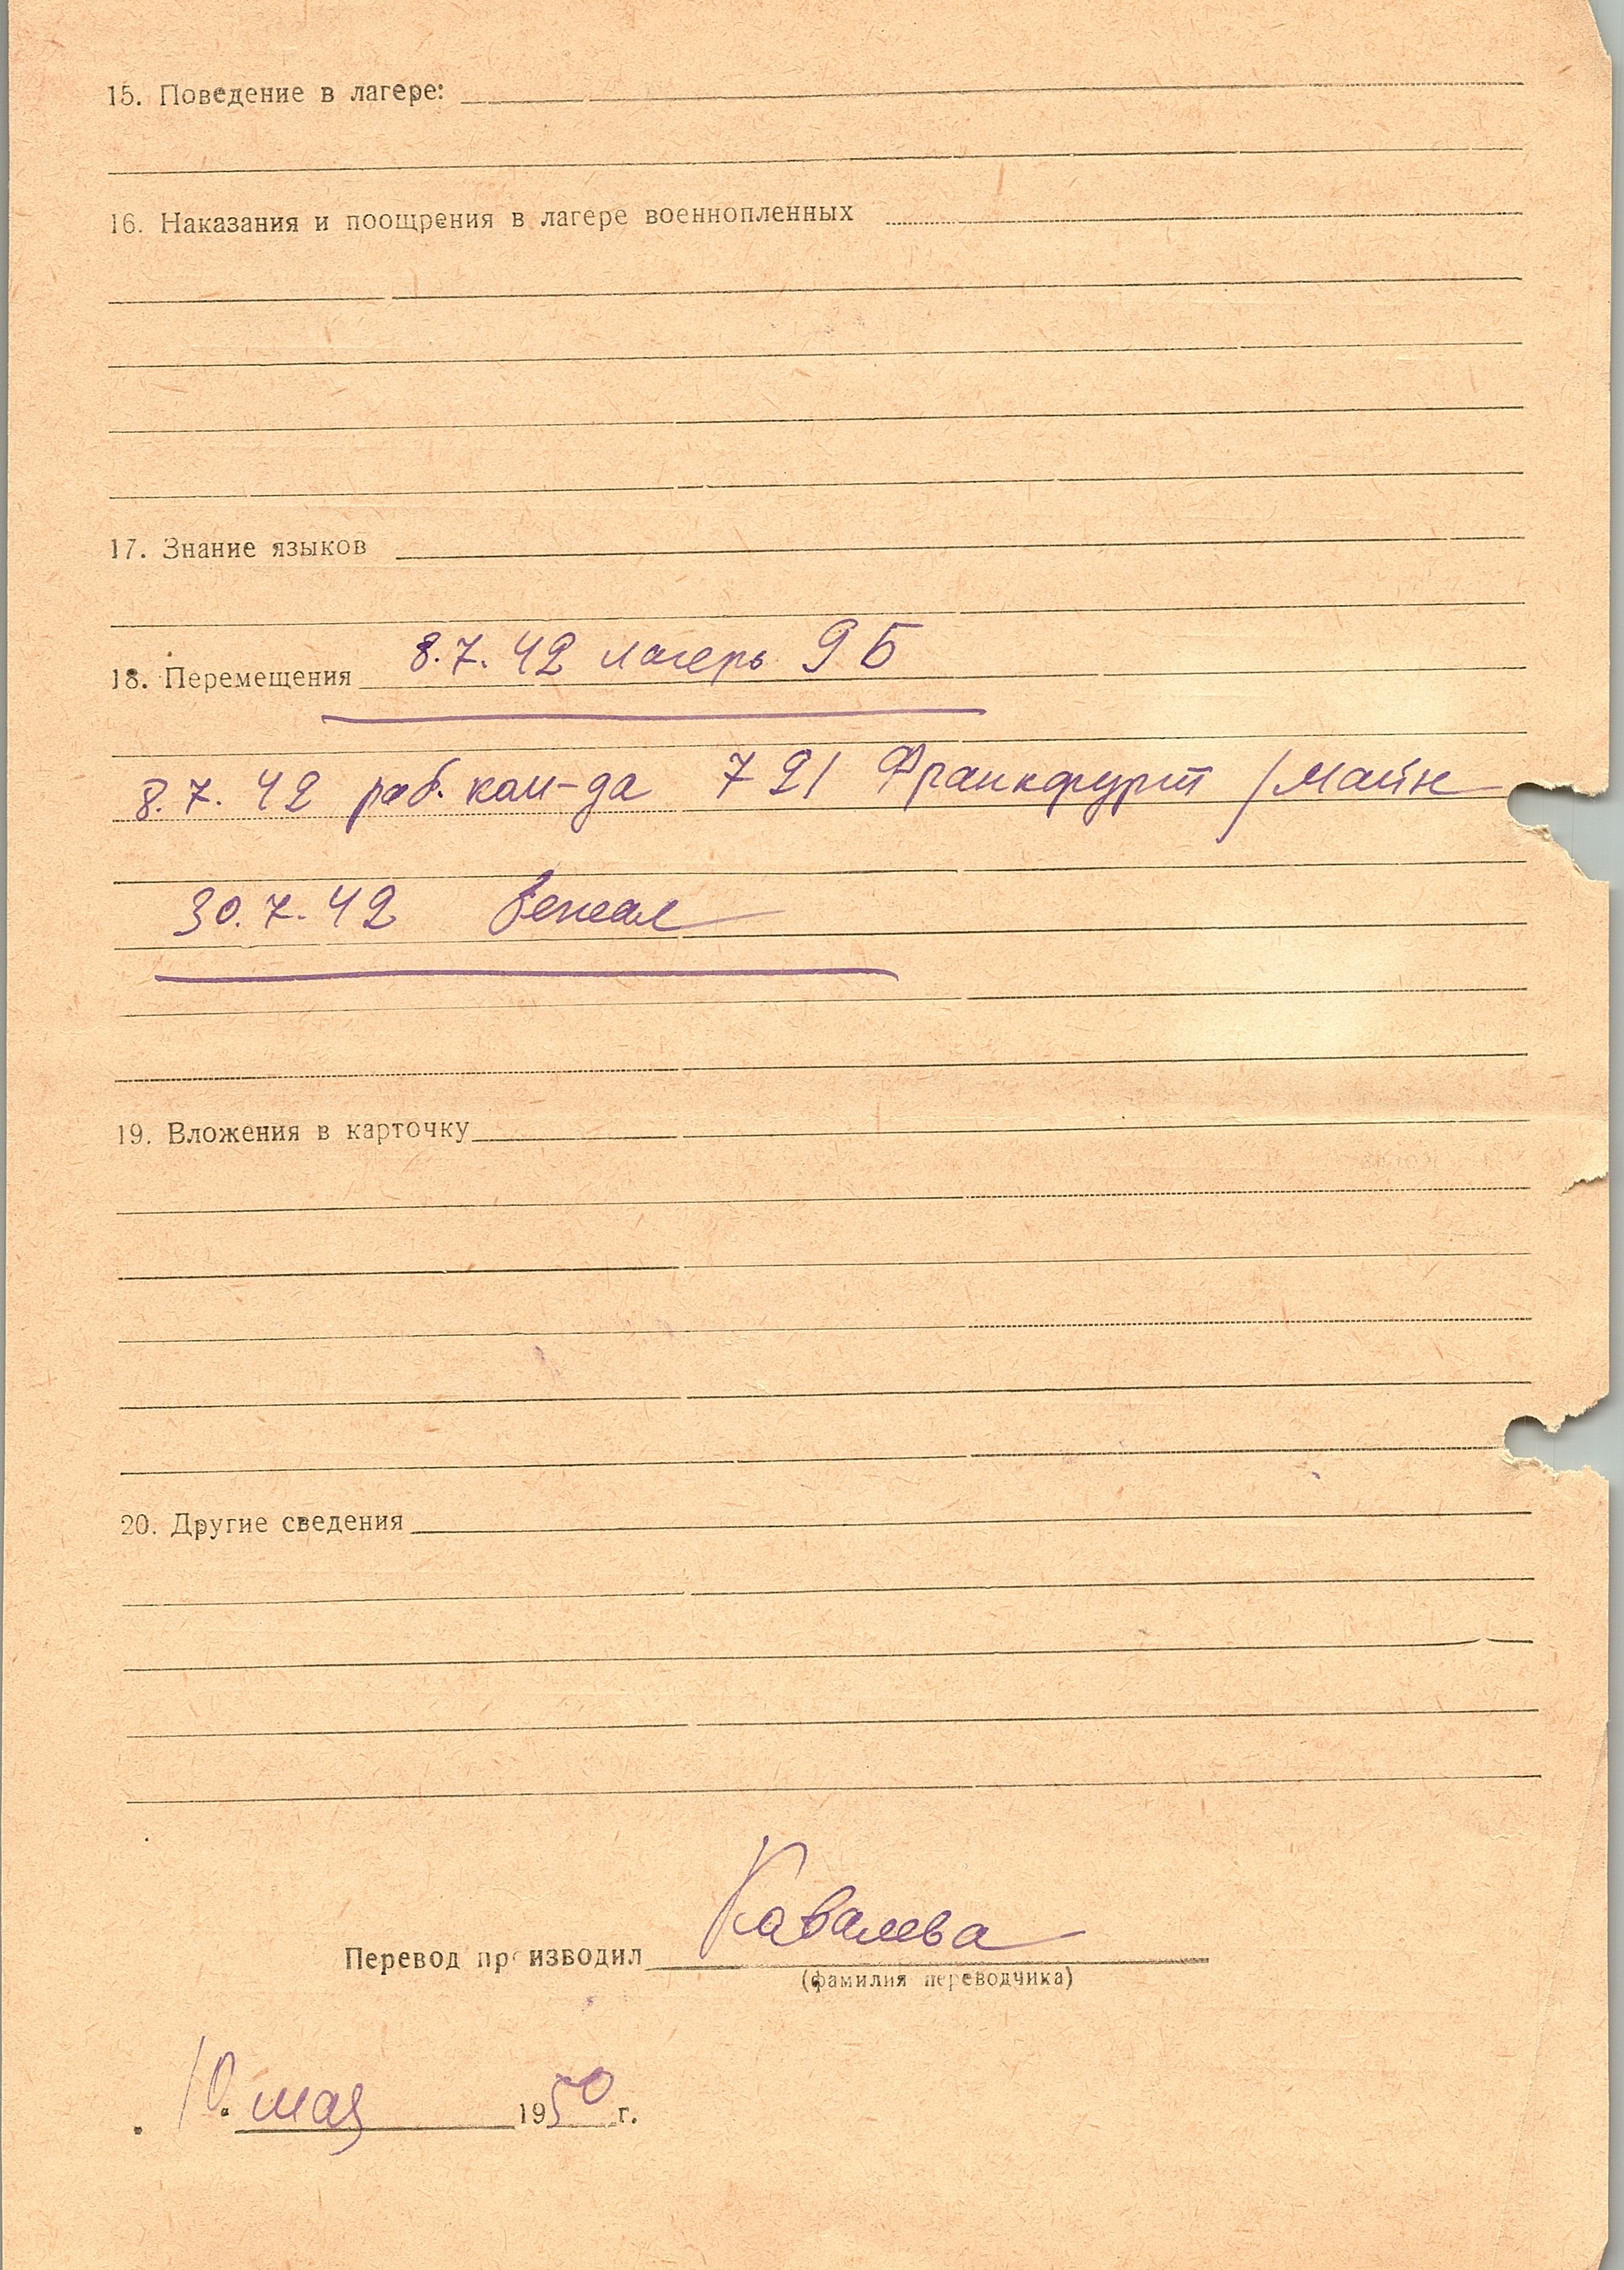 15. Поведение в лагере:
16. Наказания и поощрения в лагере военнопленных
17. Знание языков
18. Перемещения 8.7.42 лагерь 9 Б
8.7.42 раб. ком-да 721 Франкфурт /Майн
30.7.42 бежал
19. Вложения в карточку
20. Другие сведения
Перевод производил Кавалева
(фамилия переводчика)
10. мая 1950 г.